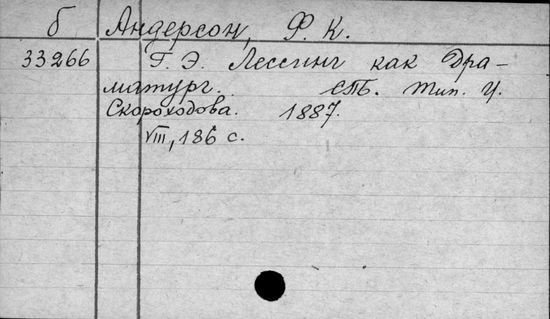 б Андерсон, Ф. К.
33266 Г. Э. Лессинг как Дра-
матург. СПб. Тип. И.
Скороходова. 1887.
VIII, 186 с.